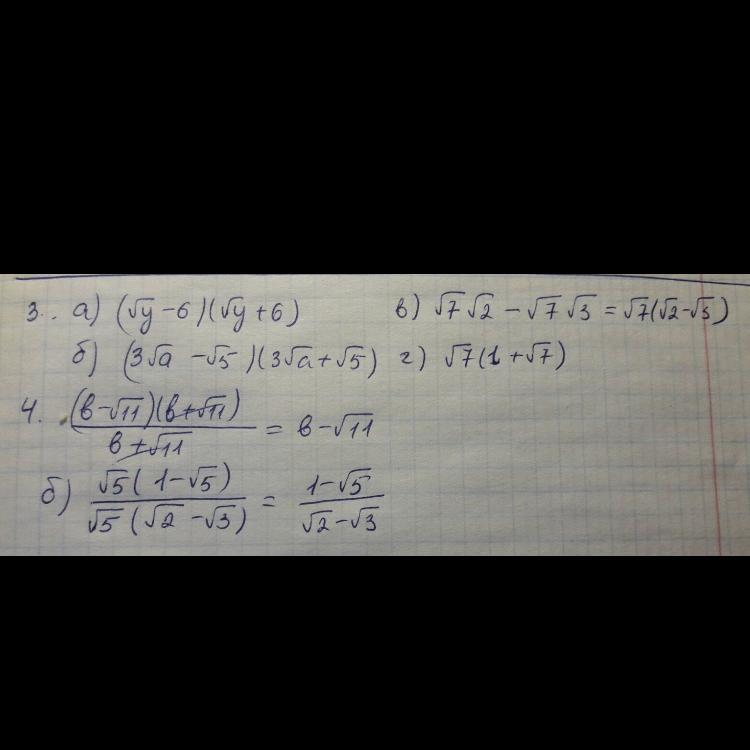 3.. а) (√y − 6)(√y + 6) в) √7 √2 − √7 √3 = √7(√2 − √3)
б) (3√a − √5)(3√a + √5) г) √7(1 + √7)
4. (в − √11)(в + √11) / в + √11 = в − √11
б) √5(1 − √5) / √5(√2 − √3) = 1 − √5 / √2 − √3